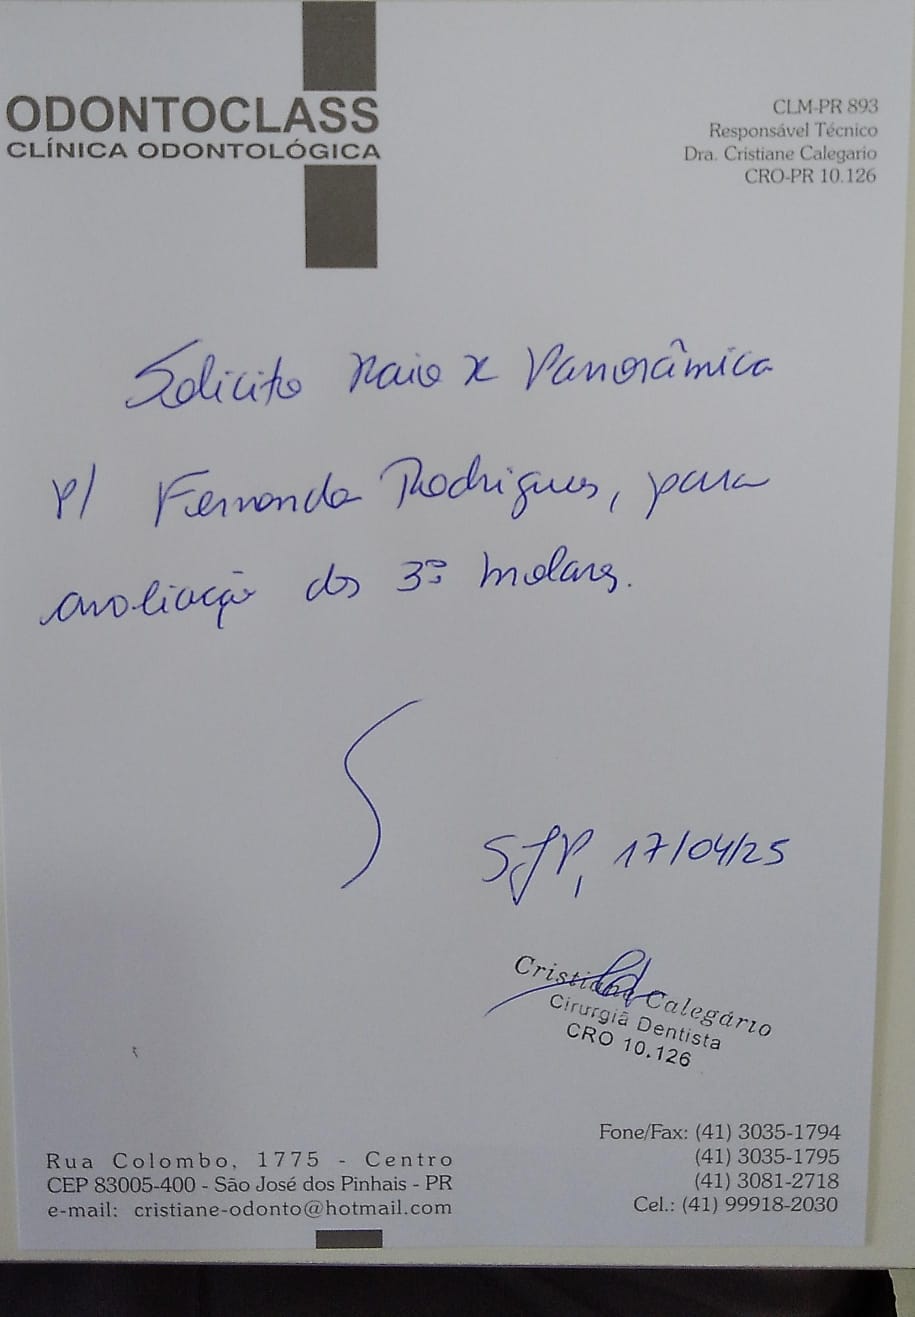 ODONTOCLASS
CLÍNICA ODONTOLÓGICA
CLM-PR 893
Responsável Técnico
Dra. Cristiane Calegario
CRO-PR 10.126
Solicito Raio X Panorâmica
p/ Fernanda Rodrigues, para
avaliação dos 3ºs molares.
SJP, 17/04/25
Cristiane Calegário
Cirurgiã Dentista
CRO 10.126
Rua Colombo, 1775 - Centro
CEP 83005-400 - São José dos Pinhais - PR
e-mail: cristiane-odonto@hotmail.com
Fone/Fax: (41) 3035-1794
(41) 3035-1795
(41) 3081-2718
Cel.: (41) 99918-2030